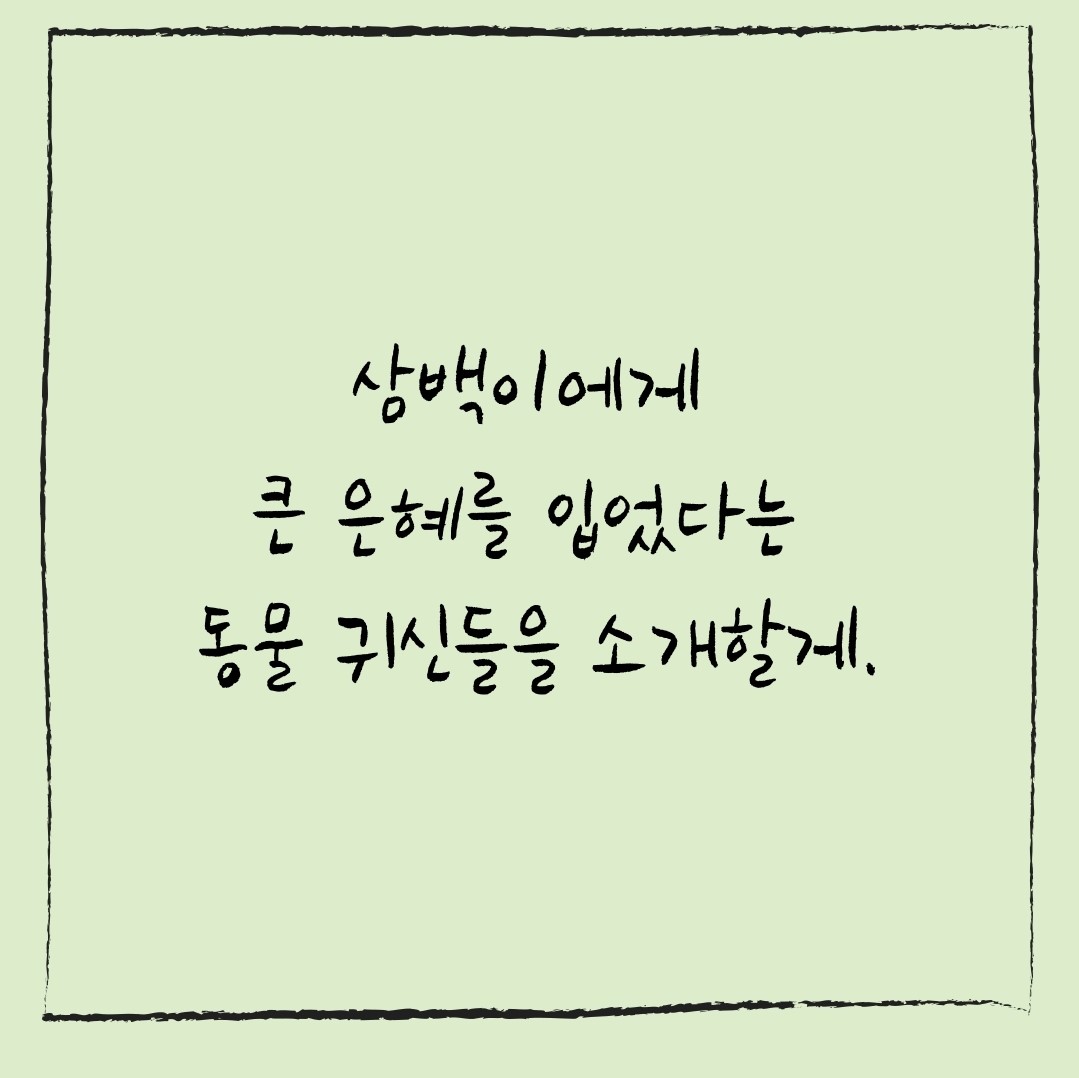 삼백이에게
큰 은혜를 입었다는
동물 귀신들을 소개할게.